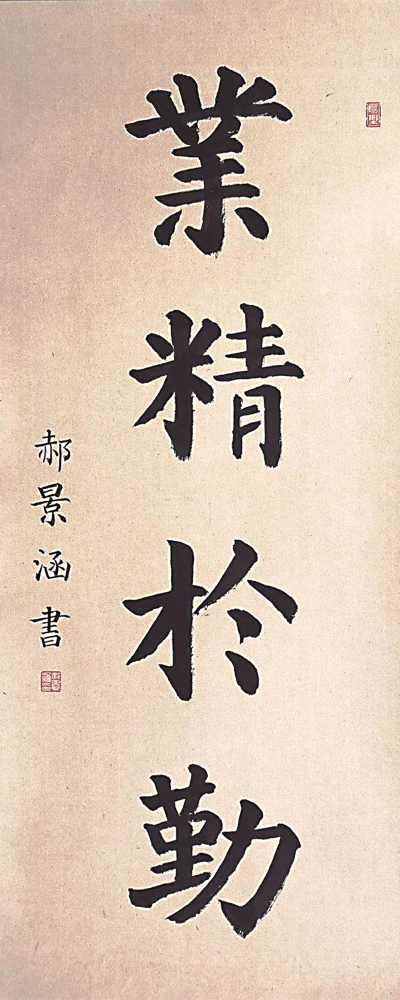 業精於勤
郝景涵書